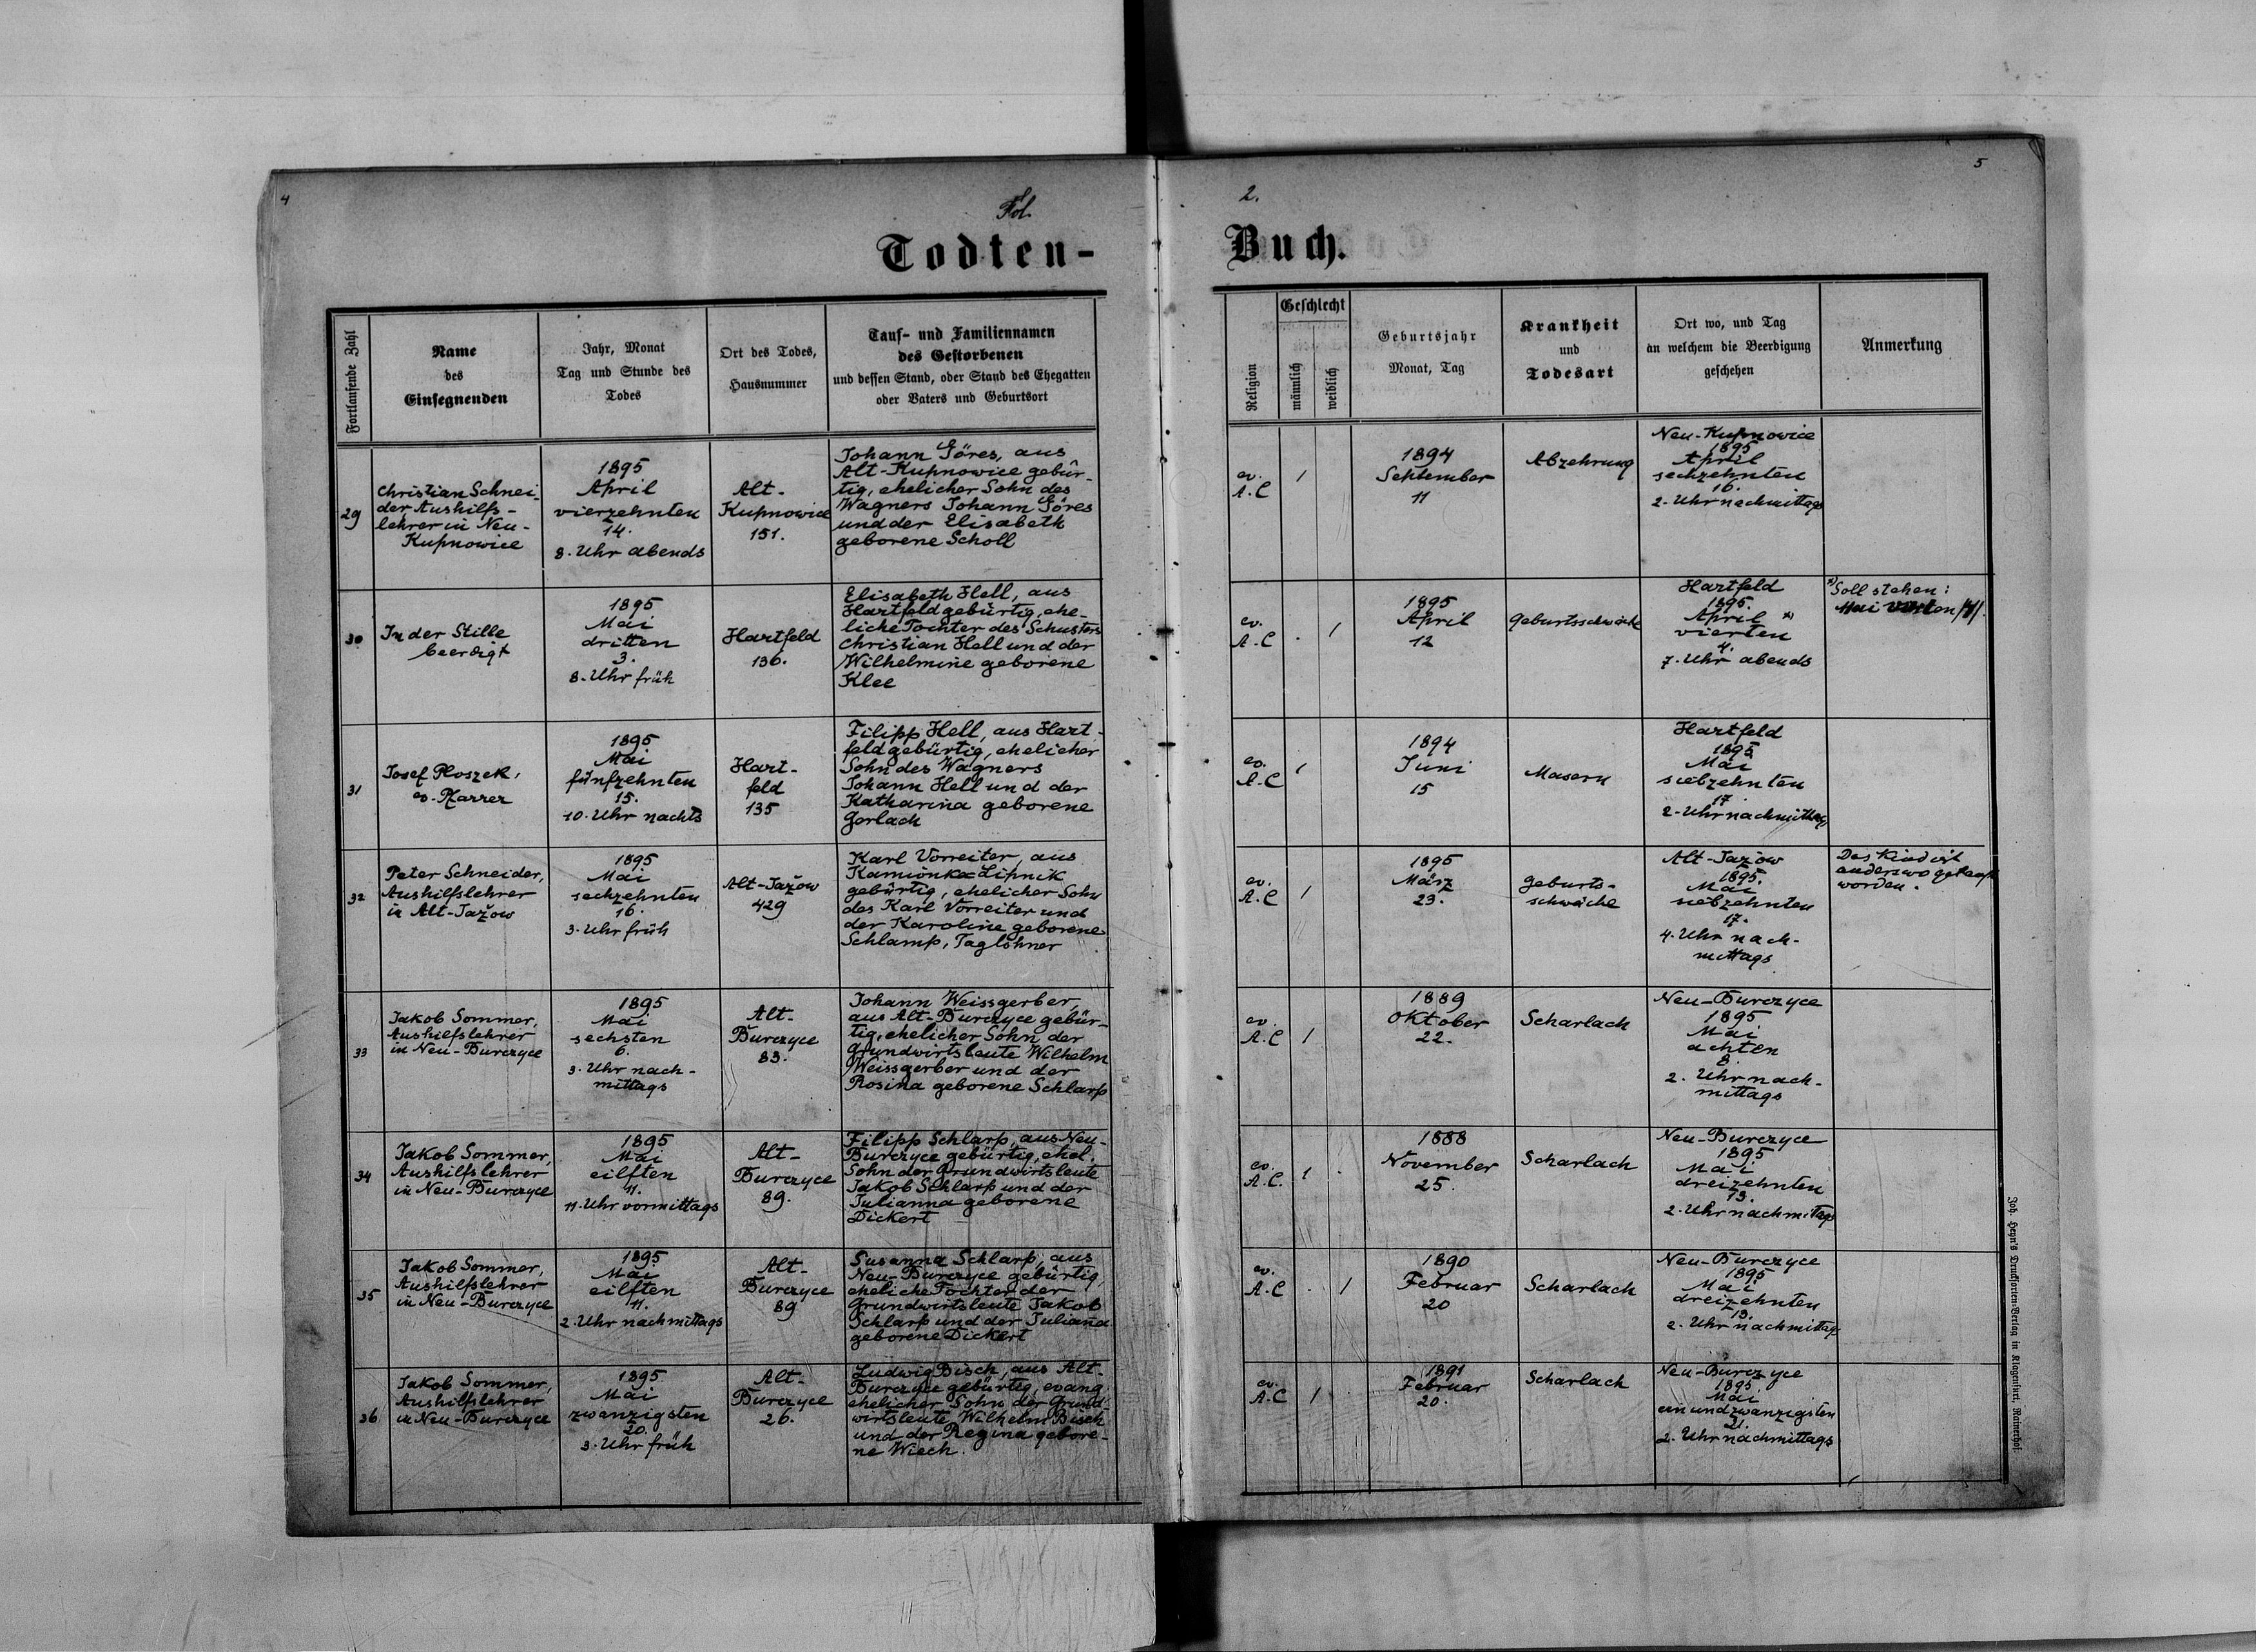 4
Fol.
2.
5
Todten-
Buch.
Fortlaufende Zahl
Name
des
Einsegnenden
Jahr, Monat
Tag und Stunde des
Todes
Ort des Todes,
Hausnummer
Tauf- und Familiennamen
des Gestorbenen
und dessen Stand, oder Stand des Ehegatten
oder Vaters und Geburtsort
Religion
Geschlecht
männlich
weiblich
Geburtsjahr
Monat, Tag
Krankheit
und
Todesart
Ort wo, und Tag
an welchem die Beerdigung
geschehen
Anmerkung
29
Christian Schnei-
der Aushilfs-
lehrer in Neu-
Kupnowice
1895
April
vierzehnten
14.
8. Uhr abends
Alt-
Kupnowice
151.
Johann Göres, aus
Alt-Kupnowice gebür-
tig, ehelicher Sohn des
Wagners Johann Göres
und der Elisabeth
geborene Scholl
ev.
A.C
1
1894
September
11
Abzehrung
Neu-Kupnowice
1895
April
sechzehnten
16.
2. Uhr nachmittags
30
In der Stille
beerdigt
1895
Mai
dritten
3.
8. Uhr früh
Hartfeld
136.
Elisabeth Hell, aus
Hartfeld gebürtig, ehe-
liche Tochter des Schusters
Christian Hell und der
Wilhelmine geborene
Klee
ev.
A.C
.
1
1895
April
12
Geburtsschwäche
Hartfeld
1895.
April *)
vierten
4.
7. Uhr abends
*) Soll stehen:
Mai vierten /4/.
31
Josef Ploszek,
ev. Pfarrer
1895
Mai
fünfzehnten
15.
10. Uhr nachts
Hart-
feld
135
Filipp Hell, aus Hart-
feld gebürtig, ehelicher
Sohn des Wagners
Johann Hell und der
Katharina geborene
Gerlach
ev.
A.C
1
1894
Juni
15
Masern
Hartfeld
1895
Mai
siebzehnten
17.
2. Uhr nachmittag
32
Peter Schneider,
Aushilfslehrer
in Alt-Jażow
1895
Mai
sechzehnten
16.
3. Uhr früh
Alt-Jażow
429
Karl Vorreiter, aus
Kamionka Lipnik
gebürtig, ehelicher Sohn
des Karl Vorreiter und
der Karoline geborene
Schlamp, Taglöhner
ev.
A.C
1
1895
März
23.
Geburts-
schwäche
Alt-Jażow
1895.
Mai
siebzehnten
17.
4. Uhr nach-
mittags
Das Kind ist
anderswo getauft
worden.
33
Jakob Sommer,
Aushilfslehrer
in Neu-Burczyce
1895
Mai
sechsten
6.
3. Uhr nach-
mittags
Alt-
Burczyce
83.
Johann Weissgerber,
aus Alt-Burczyce gebür-
tig, ehelicher Sohn der
Grundwirtsleute Wilhelm
Weissgerber und der
Rosina geborene Schlarp
ev.
A.C
1
1889
Oktober
22.
Scharlach
Neu-Burczyce
1895
Mai
achten
8.
2. Uhr nach-
mittags
34
Jakob Sommer,
Aushilfslehrer
in Neu-Burczyce
1895
Mai
eilften
11.
11. Uhr vormittags
Alt-
Burczyce
89.
Filipp Schlarp, aus Neu-
Burczyce gebürtig, ehel.
Sohn der Grundwirtsleute
Jakob Schlarp und der
Julianna geborene
Dickert
ev.
A.C.
1
.
1888
November
25.
Scharlach
Neu-Burczyce
1895
Mai
dreizehnten
13.
2. Uhr nachmittags
35
Jakob Sommer,
Aushilfslehrer
in Neu-Burczyce
1895
Mai
eilften
11.
2. Uhr nachmittags
Alt-
Burczyce
89
Susanna Schlarp, aus
Neu-Burczyce gebürtig
eheliche Tochter der
Grundwirtsleute Jakob
Schlarp und der Juliana
geborene Dickert
ev.
A.C
.
1
1890
Februar
20
Scharlach
Neu-Burczyce
1895
Mai
dreizehnten
13.
2. Uhr nachmittag
36
Jakob Sommer,
Aushilfslehrer
in Neu-Burczyce
1895
Mai
zwanzigsten
20.
3. Uhr früh
Alt-
Burczyce
26.
Ludwig Bisch, aus Alt-
Burczyce gebürtig, evang.
ehelicher Sohn der Grund-
wirtsleute Wilhelm Bisch
und der Regina gebore-
ne Wiech.
ev.
A.C
1
1891
Februar
20.
Scharlach
Neu-Burczyce
1895
Mai
einundzwanzigsten
21.
2. Uhr nachmittags
Joh. Heyn's Drucksorten-Verlag in Klagenfurt, Rainerhof.